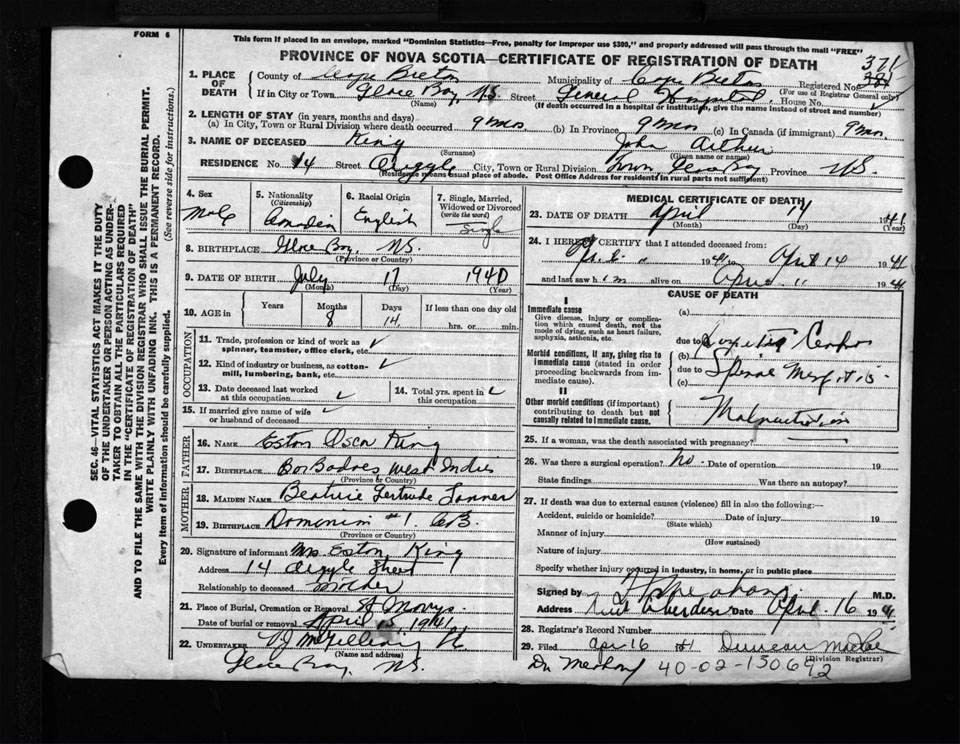 FORM 6
This form if placed in an envelope, marked "Dominion Statistics—Free, penalty for improper use $300," and properly addressed will pass through the mail "FREE"
PROVINCE OF NOVA SCOTIA—CERTIFICATE OF REGISTRATION OF DEATH
371
1. PLACE OF DEATH County of Cape Breton Municipality of Cape Breton Registered No.
(For use of Registrar General only)
If in City or Town Glace Bay, N.S. Street General Hospital House No.
(Name) (If death occurred in a hospital or institution, give the name instead of street and number)
2. LENGTH OF STAY (in years, months and days)
(a) In City, Town or Rural Division where death occurred 9 mos. (b) In Province 9 mos (c) In Canada (if immigrant) 9 mos.
3. NAME OF DECEASED King John Arthur
(Surname) (Given name or names)
RESIDENCE No. 14 Street Argyle City, Town or Rural Division Town Glace Bay Province N.S.
(Residence means usual place of abode. Post Office Address for residents in rural parts not sufficient)
4. Sex Male
5. Nationality (Citizenship) Canadian
6. Racial Origin English
7. Single, Married, Widowed or Divorced (write the word) Single
8. BIRTHPLACE Glace Bay, N.S.
(Province or Country)
9. DATE OF BIRTH July 17 1940
(Month) (Day) (Year)
10. AGE in Years Months 8 Days 14 If less than one day old
hrs. or min.
OCCUPATION
11. Trade, profession or kind of work as spinner, teamster, office clerk, etc.
12. Kind of industry or business, as cotton-mill, lumbering, bank, etc.
13. Date deceased last worked at this occupation
14. Total yrs. spent in this occupation
15. If married give name of wife or husband of deceased
FATHER
16. NAME Eston Oscar King
17. BIRTHPLACE BarBadoes West Indies
(Province or Country)
MOTHER
18. MAIDEN NAME Beatrice Gertrude
19. BIRTHPLACE Dominion #1. C.B.
(Province or Country)
20. Signature of informant Mrs. Eston King
Address 14 Argyle Street
Relationship to deceased mother
21. Place of Burial, Cremation or Removal St Marys.
Date of burial or removal April 15, 1941
22. UNDERTAKER
(Name and address)
Glace Bay, N.S.
MEDICAL CERTIFICATE OF DEATH
23. DATE OF DEATH April 14 1941
(Month) (Day)
24. I HEREBY CERTIFY that I attended deceased from:
1941 to April 14 1941
and last saw him alive on April " 1941
CAUSE OF DEATH
I
Immediate cause
Give disease, injury or complication which caused death, not the mode of dying, such as heart failure, asphyxia, asthenia, etc.
(a)
due to
Morbid conditions, if any, giving rise to immediate cause (stated in order proceeding backwards from immediate cause).
(b)
due to
(c)
II
Other morbid conditions (if important) contributing to death but not causally related to immediate cause.
25. If a woman, was the death associated with pregnancy?
26. Was there a surgical operation? No. Date of operation 19
State findings Was there an autopsy?
27. If death was due to external causes (violence) fill in also the following:—
Accident, suicide or homicide? Date of injury 19
(State which)
Manner of injury
(How sustained)
Nature of injury
Specify whether injury occurred in industry, in home, or in public place
Signed by M.D.
Address New Aberdeen Date April 16 1941
28. Registrar's Record Number
29. Filed Apr 16 Duncan
(Division Registrar)
40-02-150692
SEC. 46—VITAL STATISTICS ACT MAKES IT THE DUTY
OF THE UNDERTAKER OR PERSON ACTING AS UNDERTAKER TO OBTAIN ALL THE PARTICULARS REQUIRED
IN THE "CERTIFICATE OF REGISTRATION OF DEATH"
AND TO FILE THE SAME WITH THE DIVISION REGISTRAR WHO SHALL ISSUE THE BURIAL PERMIT.
WRITE PLAINLY WITH UNFADING INK. THIS IS A PERMANENT RECORD.
Every item of information should be carefully supplied. (See reverse side for instructions.)